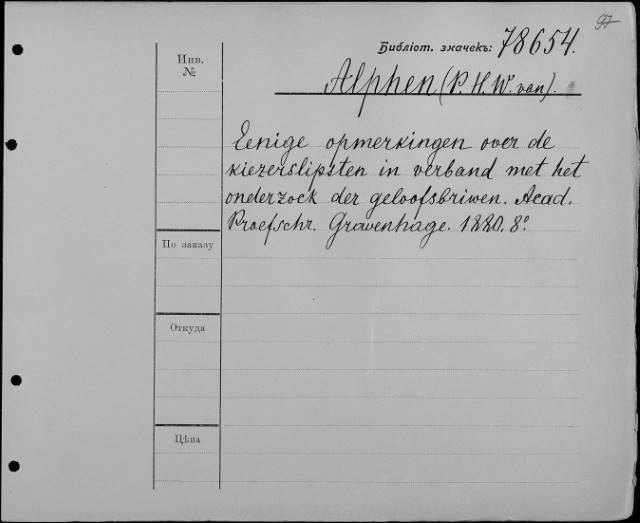 97
Библіот. значекъ: 78654.
Инв.
№
Alphen (P. H. W. van).
Eenige opmerkingen over de
kiezerslipsten in verband met het
onderzock der geloofsbriwen. Acad.
Proefschr. Gravenhage. 1880. 8º
По заказу
Откуда
Цѣна